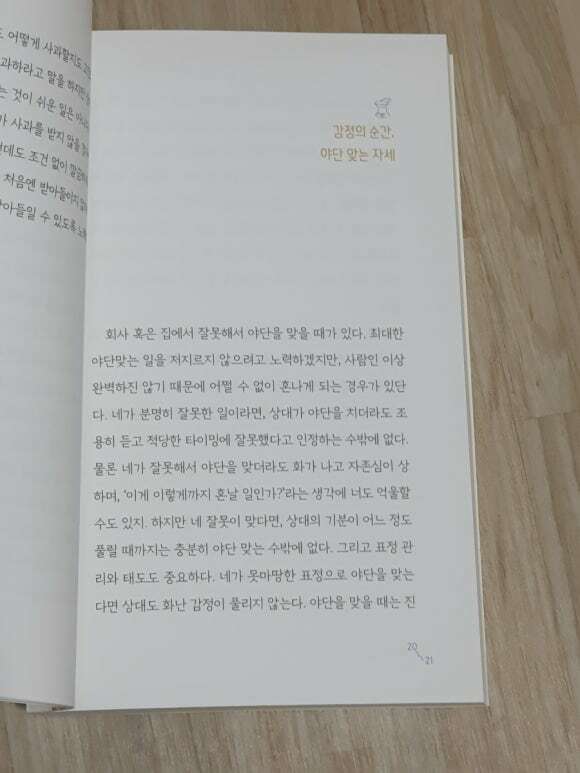 어떻게 사과할지도
과하라고 말을 하지만
는 것이 쉬운 일은
가 사과를 받지 않을
런데도 조건 없이
처음엔 받아들이지
받아들일 수 있도록
감정의 순간,
야단 맞는 자세
회사 혹은 집에서 잘못해서 야단을 맞을 때가 있다. 최대한
야단맞는 일을 저지르지 않으려고 노력하겠지만, 사람인 이상
완벽하진 않기 때문에 어쩔 수 없이 혼나게 되는 경우가 있단
다. 네가 분명히 잘못한 일이라면, 상대가 야단을 치더라도 조
용히 듣고 적당한 타이밍에 잘못했다고 인정하는 수밖에 없다.
물론 네가 잘못해서 야단을 맞더라도 화가 나고 자존심이 상
하며, '이게 이렇게까지 혼날 일인가?'라는 생각에 너도 억울할
수도 있지. 하지만 네 잘못이 맞다면, 상대의 기분이 어느 정도
풀릴 때까지는 충분히 야단 맞는 수밖에 없다. 그리고 표정 관
리와 태도도 중요하다. 네가 못마땅한 표정으로 야단을 맞는
다면 상대도 화난 감정이 풀리지 않는다. 야단을 맞을 때는 진
20
21